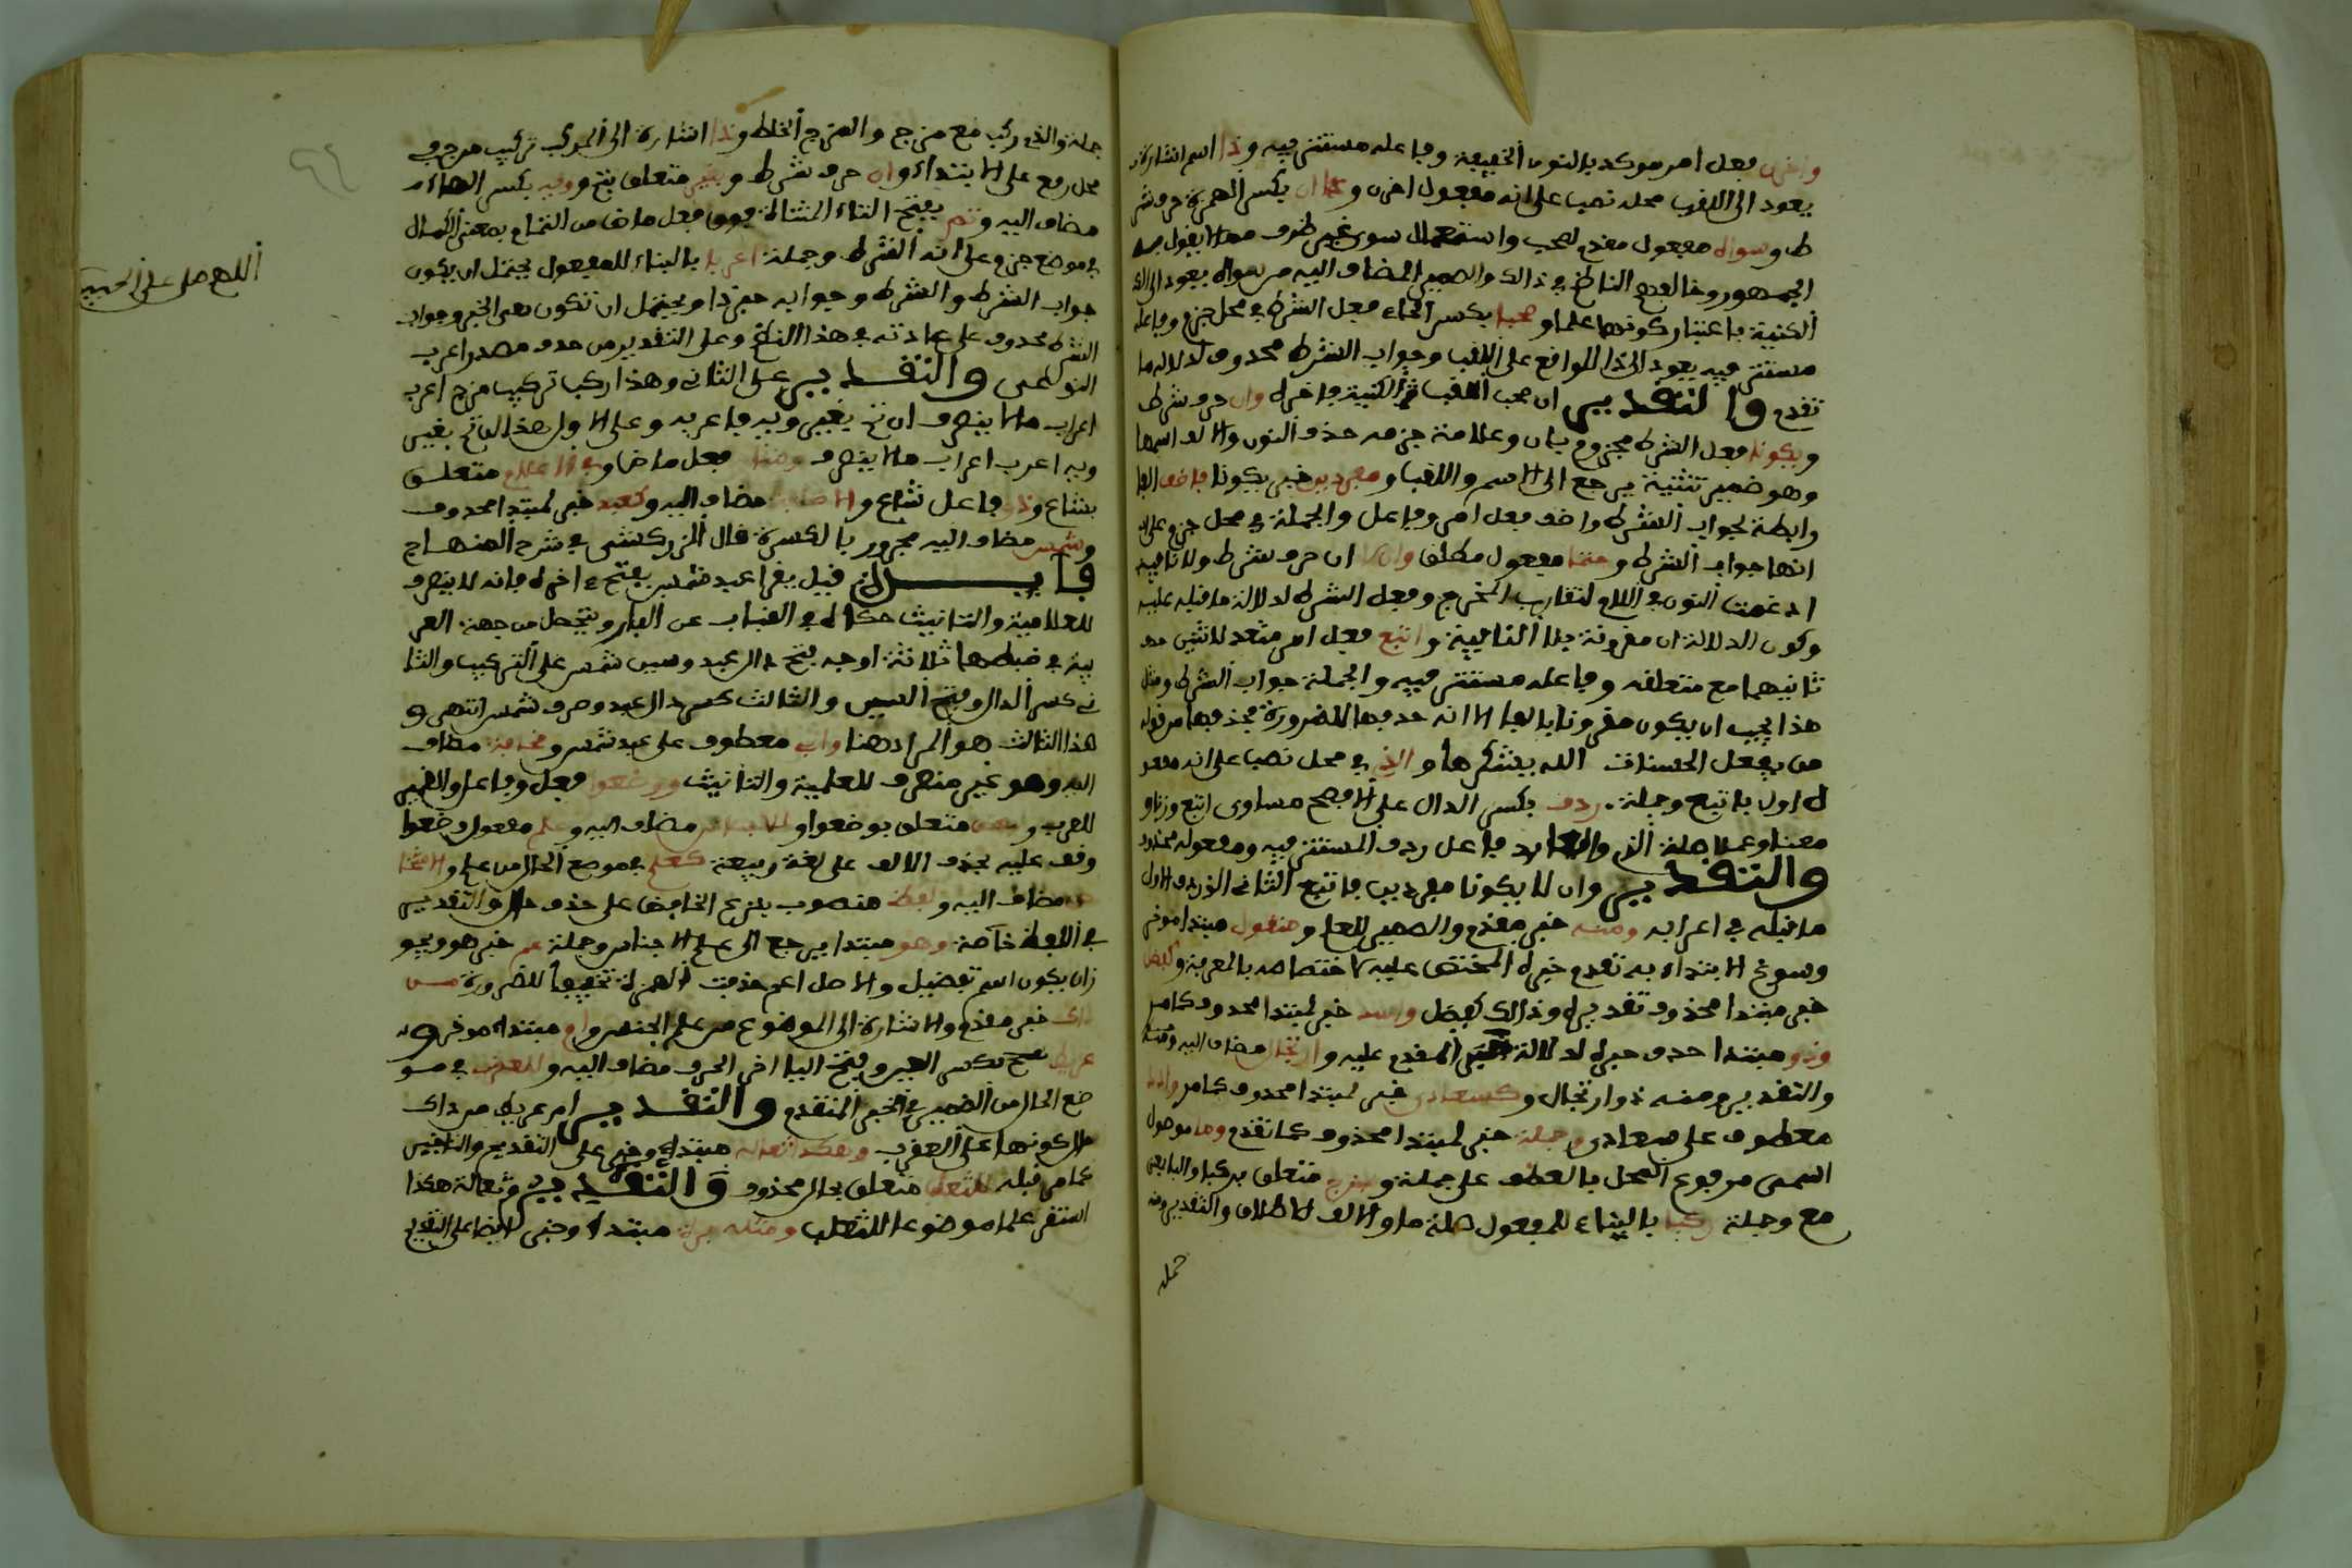 واخرن فعل امر موكد بالنون الخفيفة وفاعله مستتر فيه وذا اسم اشارة
يعود الى اللقب محله نصب على انه مفعول اخرن وان بكسر الهمزة حرف شر
ط وسواه مفعول مقدم لصحب واستعمال سوى غير ظرف مما لا يقول به
الجمهور وخالفهم الناظم في ذالك والضمير المضاف اليه من سواه يعود الى
الكنية باعتبار كونها علما وصحبا بكسر الحاء فعل الشرط في محل جزم وفاعله
مستتر فيه يعود الى ذا الواقع على اللقب وجواب الشرط محذوف لدلالة ما
تقدم والتقدير ان صحب اللقب الكنية فاخره وان حرف شرط
ويكونا فعل الشرط مجزوم بان وعلامة جزمه حذف النون والالف اسمها
وهو ضمير تثنية يرجع الى الاسم واللقب ومفردين خبر يكونا فاضف الفا
رابطة لجواب الشرط واضف فعل امر وفاعل والجملة في محل جزم على
انها جواب الشرط وحتما مفعول مطلق والا ان حرف شرط ولا نافية
ادغمت النون في اللام لتقارب المخرج وفعل الشرط لدلالة ما قبله عليه
وكون الدلالة ان مقرونة بلا النافية واتبع فعل امر متعد لاثنين حذف
ثانيهما مع متعلقه وفاعله مستتر فيه والجملة جواب الشرط ومثل
هذا يجب ان يكون مقرونا بالفا الا انه حذفها للضرورة كحذفها من قوله
من يفعل الحسنات الله يشكرها والذي في محل نصب على انه مفعو
ل اول باتبع وجملة ردف بكسر الدال على الافصح مساوى اتبع وزنا و
معنا وعملا صلة الذي والعايد فاعل ردف المستتر فيه ومفعوله محذوف
والتقدير وان لا يكونا مفردين فاتبع الثانى الذي ردف الاول
ما قبله في اعرابه ومنه خبر مقدم والضمير للعلم ومنقول مبتدا موخر
وسوغ الابتداء به تقدم خبره المختص عليه لاختصاصه بالمعرفة وكفضل
خبر مبتدا محذوف تقديره وذالك كفضل واسد خبر لمبتدا محذوف كامر
وذو مبتدا حذف خبره لدلالة الخبر المقدم عليه وارتجال مضاف اليه
والتقدير ومنه ذو ارتجال وكسعاد خبر لمبتدا محذوف كما مر وادد
معطوف على سعاد وجملة خبر لمبتدا محذوف كما تقدم وما موصول
اسمى مرفوع المحل بالعطف على جملة وبمزج متعلق بركبا والبا بمعنى
مع وجملة ركبا بالبناء للمفعول صلة ما والالف للاطلاق والتقدير ومنه
جملة
جملة والذي ركب مع مزج والمزج الخلط وذا اشارة الى المركب تركيب مزج في
محل رفع على الابتداء وان حرف شرط وبغير متعلق بتم وويه بكسر الهاء
مضاف اليه وتم بفتح التاء المثناة فوق فعل ماض من التمام بمعنى الكمال
في موضع جزم على انه الشرط وجملة اعربا بالبناء للمفعول يحتمل ان يكون
جواب الشرط والشرط وجوابه خبر ذا ويحتمل ان تكون هى الخبر وجواب
الشرط محذوف على عادته في هذا النظم وعلى التقديرين حذف مصدر اعرب
النوعى والتقدير على الثانى وهذا ركب تركيب مزج اعرب
اعراب ما لا ينصرف ان تم بغير ويه فاعربه وعلى الاول هذا ان تم بغير
ويه اعرب اعراب ما لا ينصرف وشاع فعل ماض وفي الاعلام متعلق
بشاع وذو فاعل شاع والاضافة مضاف اليه وكعبد خبر لمبتدا محذوف
وشمس مضاف اليه مجرور بالكسرة قال الزركشى في شرح المنهاج
فايدة قيل يقرا عبد شمس بفتح اخره فانه لا ينصرف
للعلمية والتانيث حكاه في العباب عن الفار ويتحصل من جهة العر
بية في ضبطهما ثلاثة اوجه بفتح دال عبد وسين شمس على التركيب والثا
نى كسر الدال وفتح السين والثالث كسر دال عبد وصرف شمس انتهى و
هذا الثالث هو المراد هنا وابى معطوف على عبد شمس وقحافة مضاف
اليه وهو غير منصرف للعلمية والتانيث ووضعوا فعل وفاعل والضمير
للعرب ولبعض متعلق بوضعوا والاجناس مضاف اليه وعلم مفعول وضعوا
وقف عليه بحذف الالف على لغة ربيعة كعلم في موضع الحال من علم والاشخا
ص مضاف اليه ولفظا منصوب بنزع الخافض على حذف حال والتقدير
في اللفظ خاصة وهو مبتدا يرجع الى علم الاجناس وجملة عم خبر هو ويجو
زان يكون اسم تفضيل والاصل اعم حذفت الهمزة تخفيفا للضرورة من
ذاك خبر مقدم والاشارة الى الموضوع من علم الجنس وام مبتدا موخر و
عريط بكسر العين وفتح اليا اخر الحرف مضاف اليه وللعقرب في مو
ضع الحال من الضمير في الخبر المتقدم والتقدير ام عريط من ذاك
حال كونها على العقرب وهكذا ثعالة مبتدا وخبر على التقديم والتاخير
كما مر قبله للثعلب متعلق بحال محذوف والتقدير وثعالة هكذا
استقر علما موضوعا للثعلب ومثله برة مبتدا وخبر ايضا على التقديم
اللهم صل على الحبيب